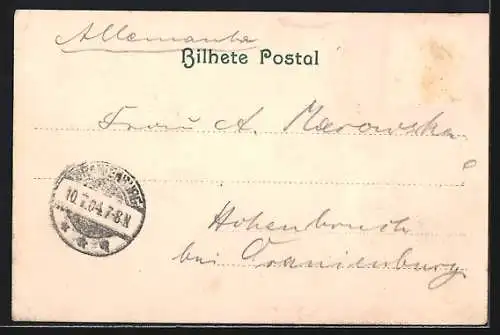 Allemanha
Bilhete Postal
Frau A. Marowska
10.7.04.7-8.N
Hohenbruch
bei Oranienburg